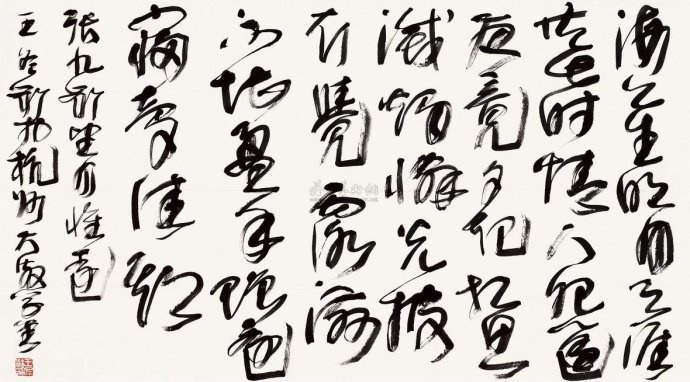 海上生明月天涯
共此时情人怨遥
夜竟夕起相思
灭烛怜光披
衣觉露滋
不堪盈手赠还
寝梦佳期
张九龄望月怀远
王冬龄于杭州